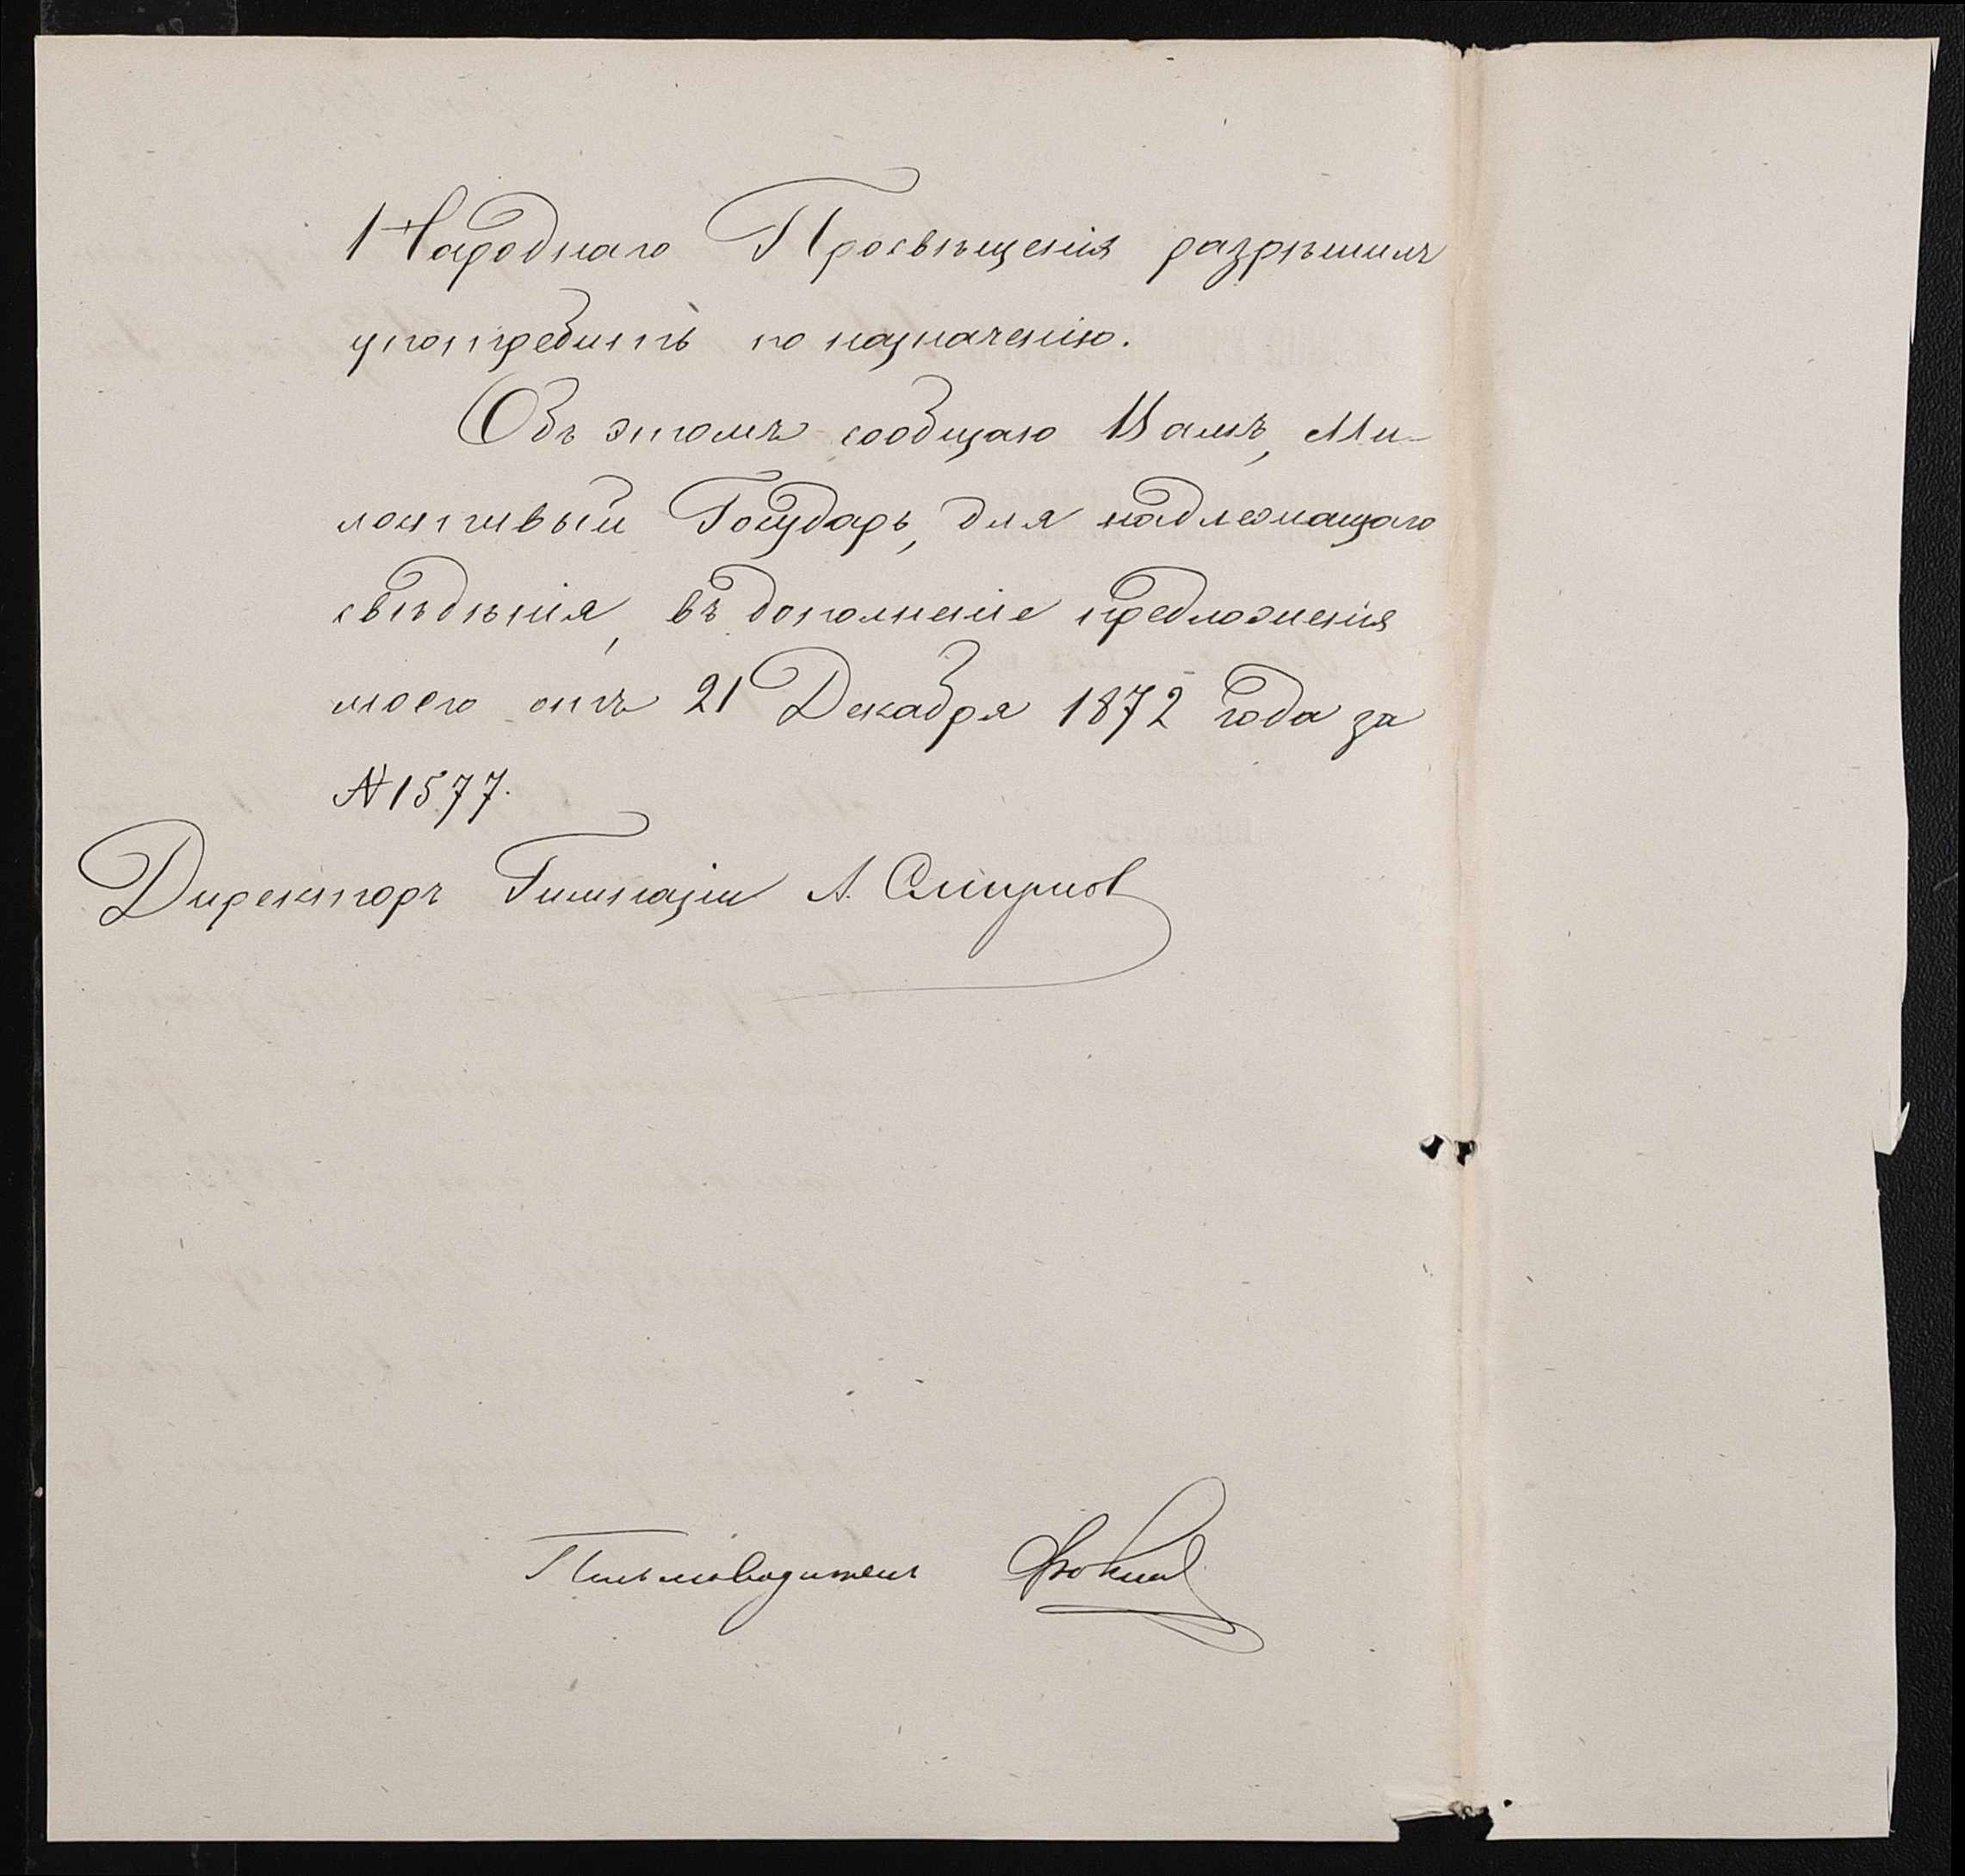 Народнаго Просвѣщенія разрѣшилъ
употребить по назначенію.
Объ этомъ сообщаю Вамъ, Ми-
лостивый Государь, для надлежащаго
свѣдѣнія, въ дополненіе предложенія
моего отъ 21 Декабря 1872 года за
№ 1577.
Директоръ Гимназіи А. Смирнов
Письмоводитель